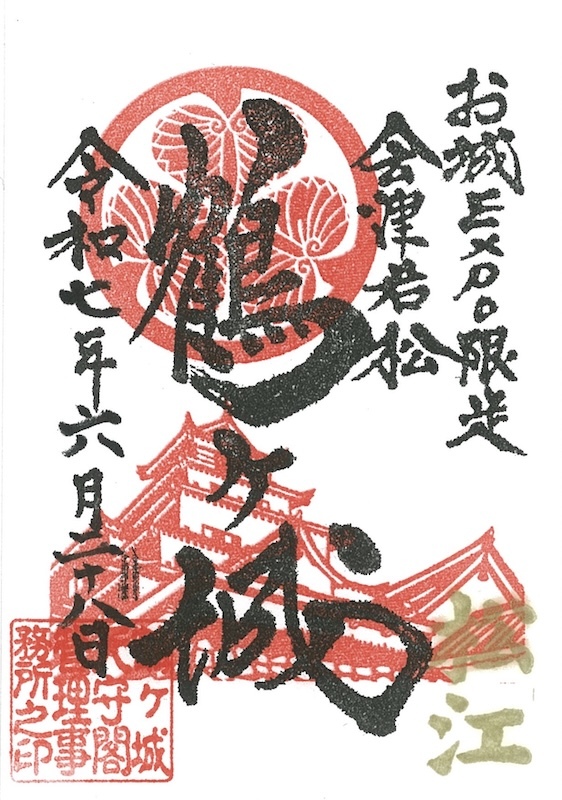 お城Expo限定
会津若松
鶴ヶ城
令和七年六月二十八日
松江
鶴ヶ城
天守閣
管理事
務所之印